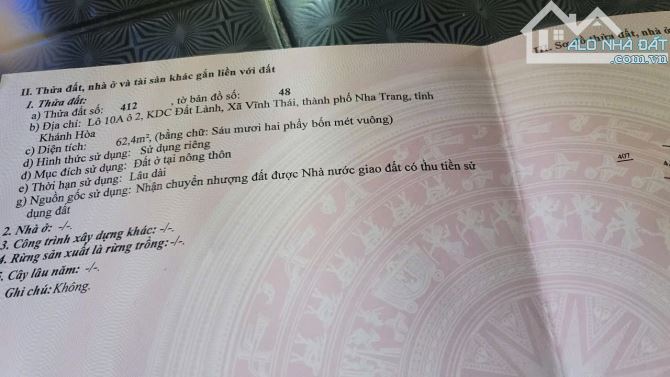 ALO NHÀ ĐẤT
.com.vn
II. Thửa đất, nhà ở và tài sản khác gắn liền với đất
1. Thửa đất:
a) Thửa đất số: 412 , tờ bản đồ số: 48
b) Địa chỉ: Lô 10A ô 2, KDC Đất Lành, Xã Vĩnh Thái, thành phố Nha Trang, tỉnh
Khánh Hòa
c) Diện tích: 62,4m², (bằng chữ: Sáu mươi hai phẩy bốn mét vuông)
d) Hình thức sử dụng: Sử dụng riêng
đ) Mục đích sử dụng: Đất ở tại nông thôn
e) Thời hạn sử dụng: Lâu dài
g) Nguồn gốc sử dụng: Nhận chuyển nhượng đất được Nhà nước giao đất có thu tiền sử
dụng đất
2. Nhà ở: -/-.
3. Công trình xây dựng khác: -/-.
4. Rừng sản xuất là rừng trồng: -/-.
. Cây lâu năm: -/-.
Ghi chú: Không.
thửa đất, nhà ở
407